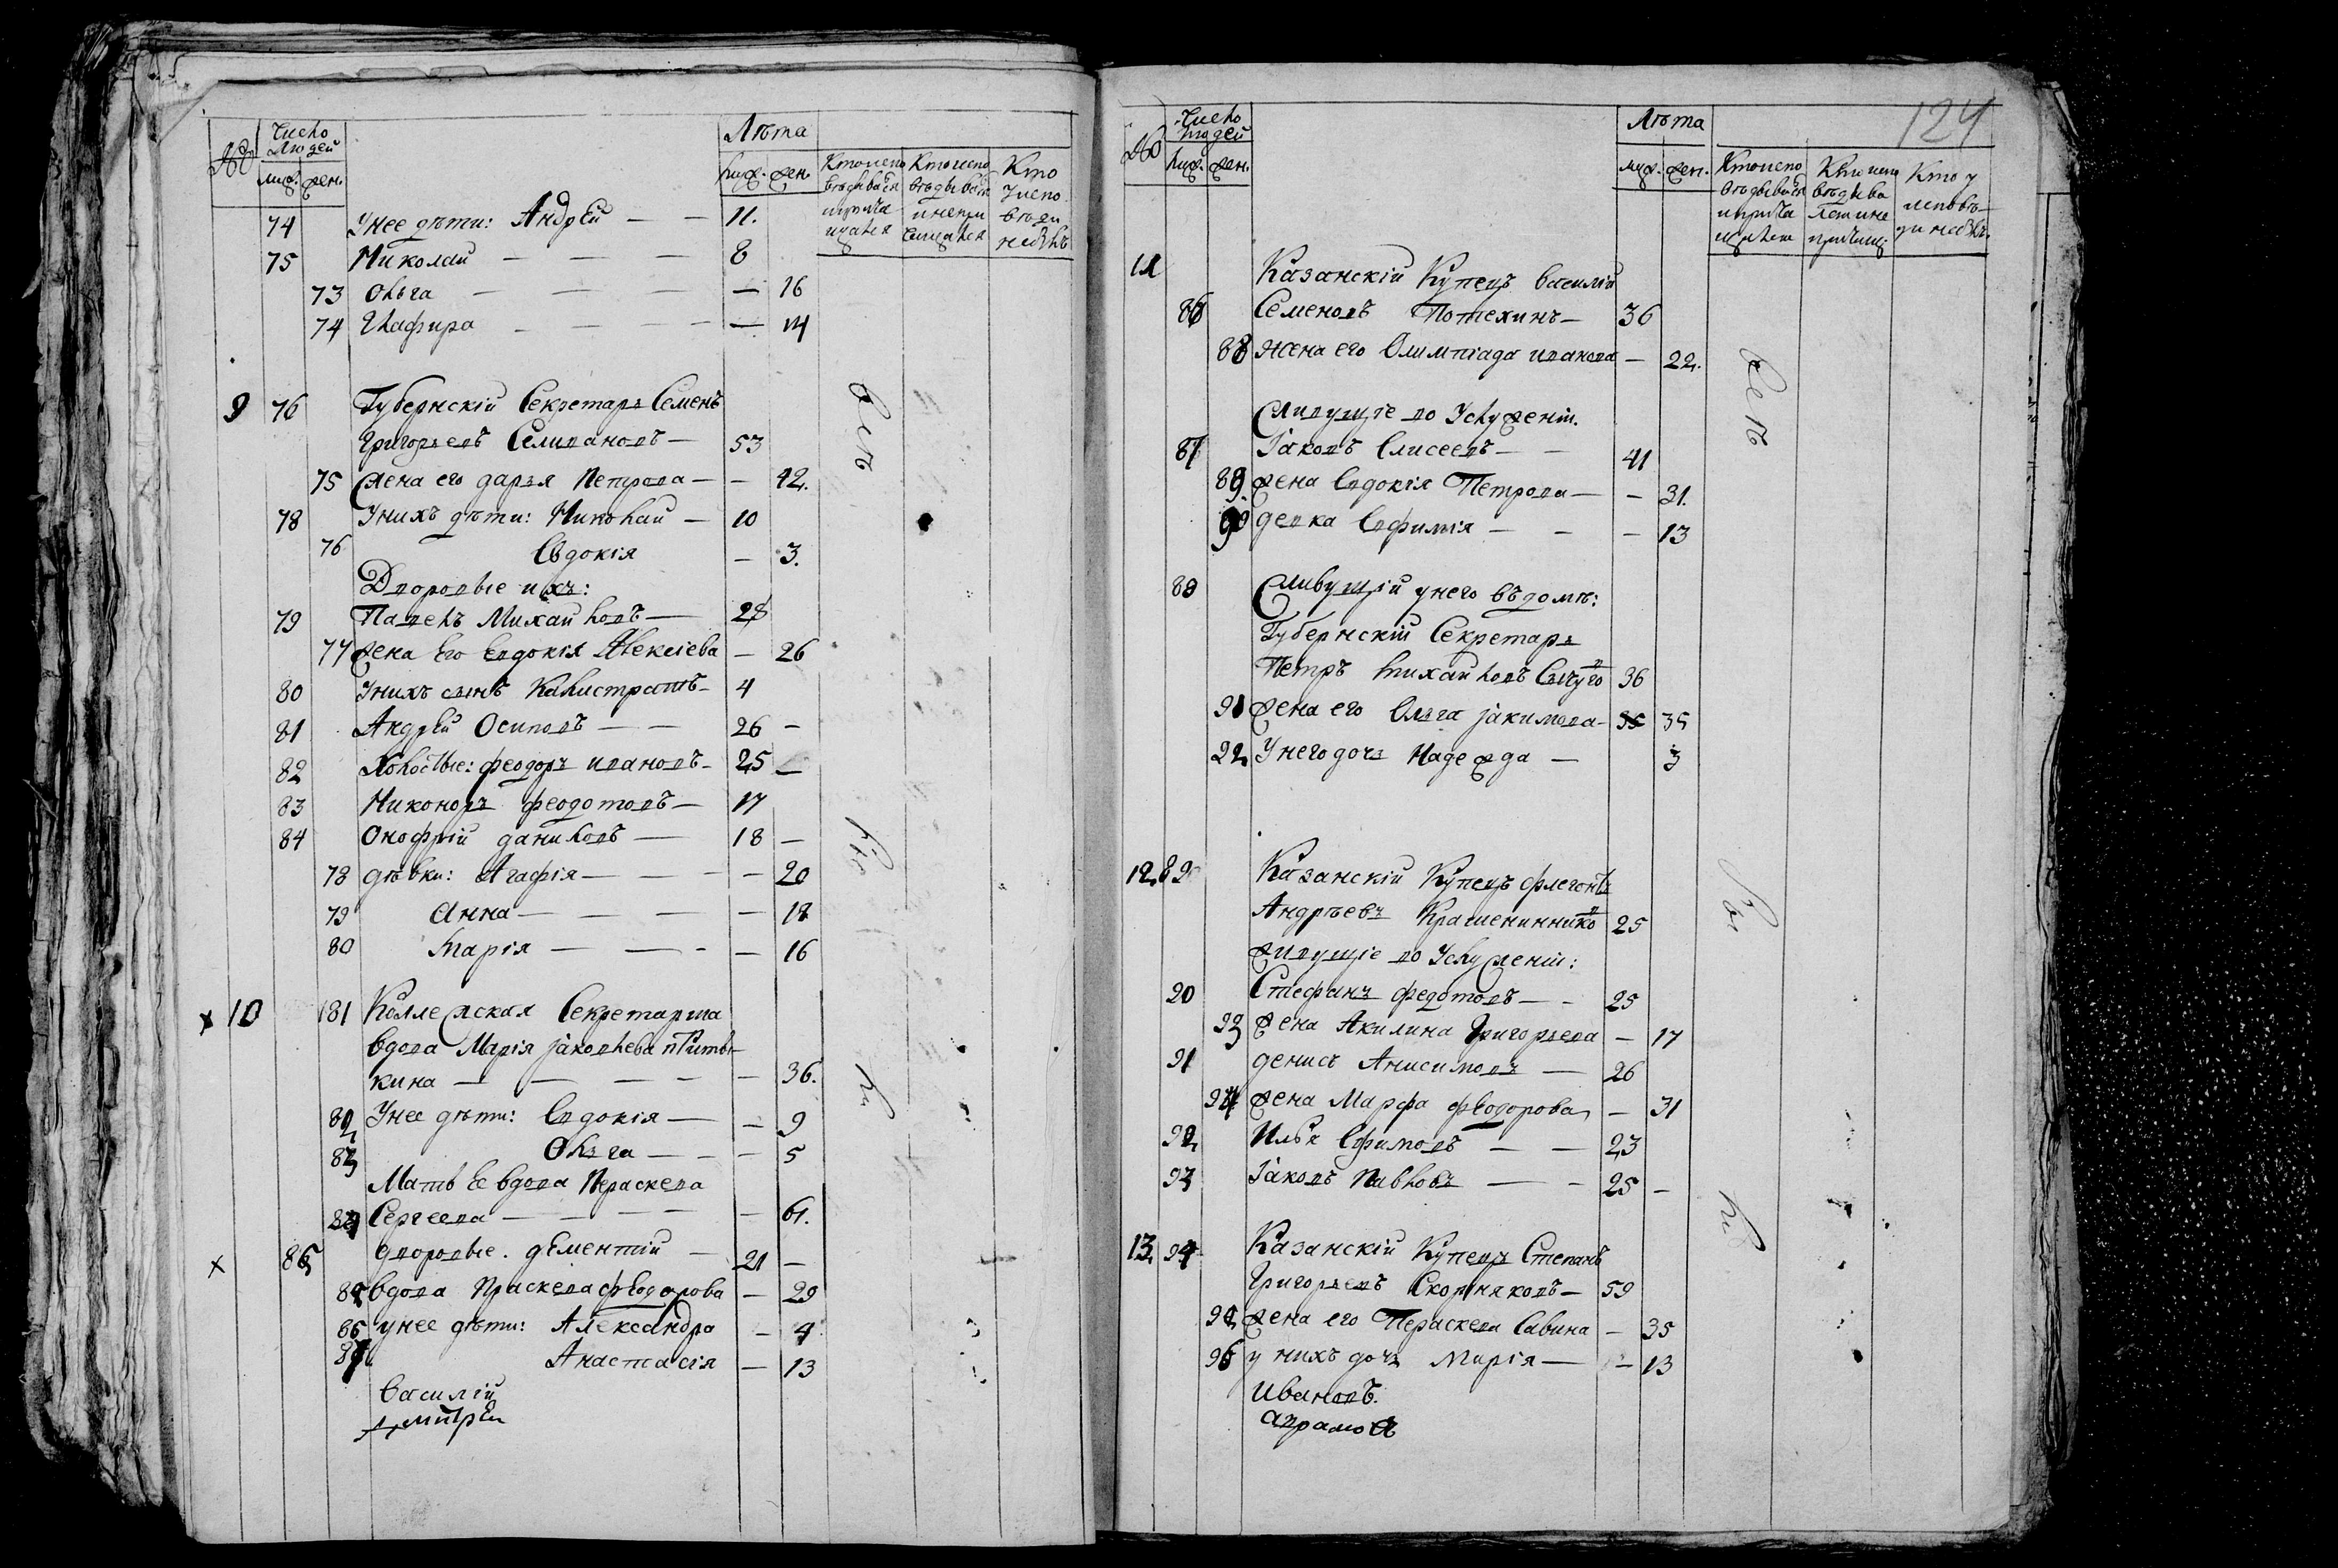 № Число Людей Лѣта
муж. жен. муж. жен. Кто испо Кто испо Кто
вѣдывался вѣдывался у испо
и прича и непри вѣди
щался чащался не былъ
74 У нее дѣти: Андрей — — 11.
75 Николай — — — 8
73 Ольга — — — — 16
74 Глафира — — — — 14
9 76 Губернскій Секретарь Семенъ
Григорьевъ Селивановъ — 53
75 Жена его дарья Петрова — — 42.
78 У нихъ дѣти: Николай — 10
76 Евдокія — 3.
Дворовые ихъ:
79 Павелъ Михайловъ — 28
77 жена Его Евдокія Алексіева — 26
80 У нихъ сынъ Калистратъ — 4
81 Андрей Осиповъ — — 26 —
82 Холостые: феодоръ ивановъ — 25 —
83 Никоноръ феодотовъ — 17
84 Онофрій даниловъ — 18 —
78 дѣвки: Агафія — — — — 20
79 Анна — — — — 18
80 Марія — — - — 16
х 10 181 Коллежская Секретарша
вдова Марія јаковлева
кина — — — — — 36.
82 У нее дѣти: Евдокія — — 9
83 Ольга — — — 5
Мать Ее вдова Параскева
84 Сергеева — — — — — 61.
х 85 дворовые. дементій — 21 —
85 вдова Праскева феодорова — 29
86 у нее дѣти: Александра — 4
87 Анастасія — 13
Василій
Дмитрей
124
№ Число людей Лѣта
муж. жен. муж. жен. Кто испо Кто испо Кто у
вѣдывался вѣдыва исповѣ
и прича лся и не ди не былъ.
щался причащ:
11 Казанскій Купецъ василій
86 Семеновъ Потехинъ — 36
88 жена его Олимпіада иванова — 22.
Живущіе во Услуженіи.
87 Іаковъ Елисеевъ — — 41
89. жена Евдокія Петрова — — 31.
90 девка Евфимія — — — 13
88 Живущій у него въ домѣ:
Губернскій Секретарь
Петръ Михайловъ 36
91 жена его Ольга јакимова — 35 35
92 У него дочь Надежда — 3
12. 89 Казанскій Купецъ флегонтъ
Андрѣевъ Крашениннико в 25
живущіе во Услуженіи:
90 Стефанъ федотовъ — - 25
93 жена Акилина Григорьева — 17
91 денисъ Анисимовъ — 26
94 жена Марфа феодорова — 31
92 Илья Ефимовъ — — 23
93 Іаковъ Павловъ — - 25 —
13. 94 Казанскій Купецъ Степанъ
Григорьевъ Скорняковъ — 59
95 жена его Параскева Савина — 35
96 у нихъ дочь Марія — — 13
Ивановъ.
Аврамовъ